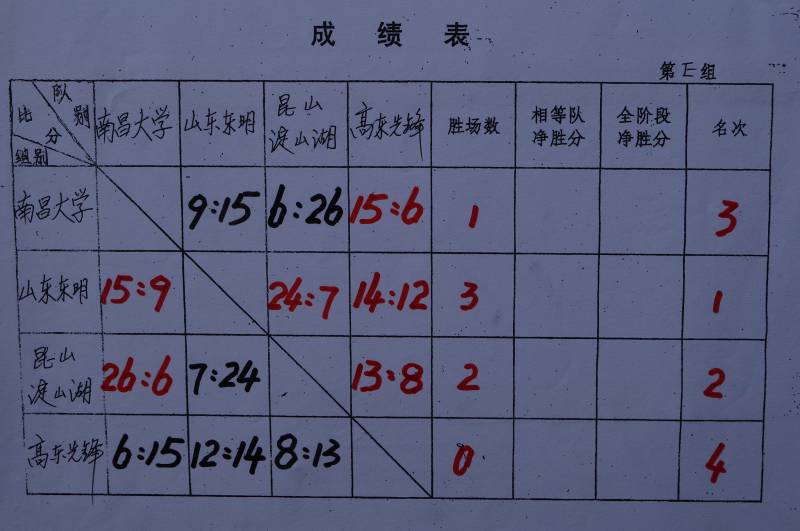 成 绩 表
第E组
队别
比分
组别
南昌大学 山东东明 昆山 淀山湖 高东先锋 胜场数 相等队净胜分 全阶段净胜分 名次
南昌大学 9:15 6:26 15:6 1 3
山东东明 15:9 24:7 14:12 3 1
昆山 淀山湖 26:6 7:24 13:8 2 2
高东先锋 6:15 12:14 8:13 0 4